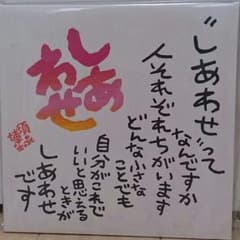 "しあわせ"って
なんですか
人それぞれちがいます
どんな小さな
ことでも
自分がこれで
いいと思える
ときが
しあわせ
です
しあ
わせ